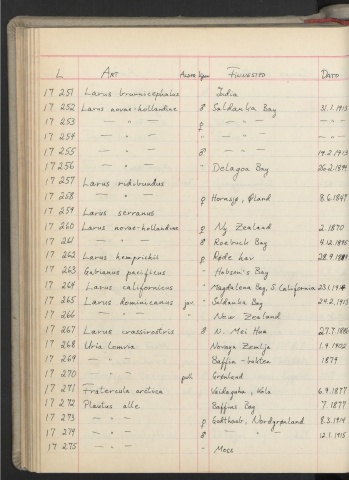 L. ART ALDER KJØNN FINNESTED DATO
17 251 Larus brunnicephalus India
17 252 Larus novae-hollandiae ♂ Saldanha Bay 31.1.1913
17 253 — " — ♀ — " —
17 254 — " — " — " — — " —
17 255 — " — ♂ — " — 14.2.1913
17 256 — " — " Delagoa Bay
17 257 Larus ridibundus
17 258 — " — ♀ Hornsjø, Øland 8.6.1847
17 259 Larus serranus
17 260 Larus novae-hollandiae ♀ Ny Zealand 2.1870
17 261 — " — ♂ Roebuck Bay 4.12.1895
17 262 Larus hemprichii ♀ Røde hav
17 263 Gabianus pacificus " Hobson's Bay
17 264 Larus californicus " Magdalena Bay, S. California 23.1.1914
17 265 Larus dominicanus juv. " Saldanha Bay 24.2.1913
17 266 — " — " New Zealand
17 267 Larus crassirostris ♂ N. Mei Hua
17 268 Uria lomvia Novaya Zemlja 1.9.1902
17 269 — " — Baffin-bukten 1879
17 270 — " — Grønland
17 271 Fratercula arctica Vaidaguba, Kola 6.9.1877
17 272 Plautus alle Baffins Bay 7.1877
17 273 — " — ♀ Godthaab, Nordgrønland 8.3.1914
17 274 — " — ♂ — " — 12.1.1915
17 275 — " — " Moss